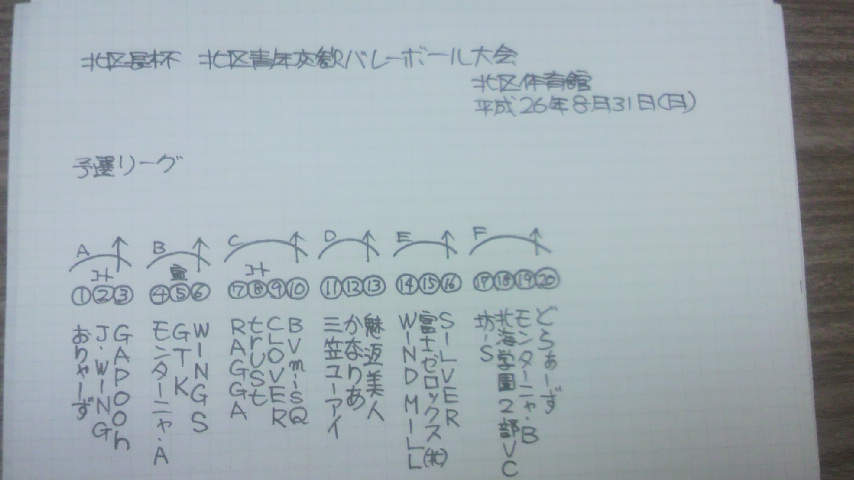 北区長杯 北区青年交歓バレーボール大会
北区体育館
平成26年8月31日(日)
予選リーグ
A B C D E F
コート コート
①②③ ④⑤⑥ ⑦⑧⑨⑩ ⑪⑫⑬ ⑭⑮⑯ ⑰⑱⑲⑳
おりゃーず
J・WING
GAPOOh
モンターニャ・A
GTK
WINGS
RAGGA
trUSt
CLOVER
BVmisQ
三笠ユーアイ
かなりあ
魅返美人
WIND MILL
富士ゼロックス㈱
SILVER
坊'S
北海学園2部VC
モンターニャ・B
どらぁーず